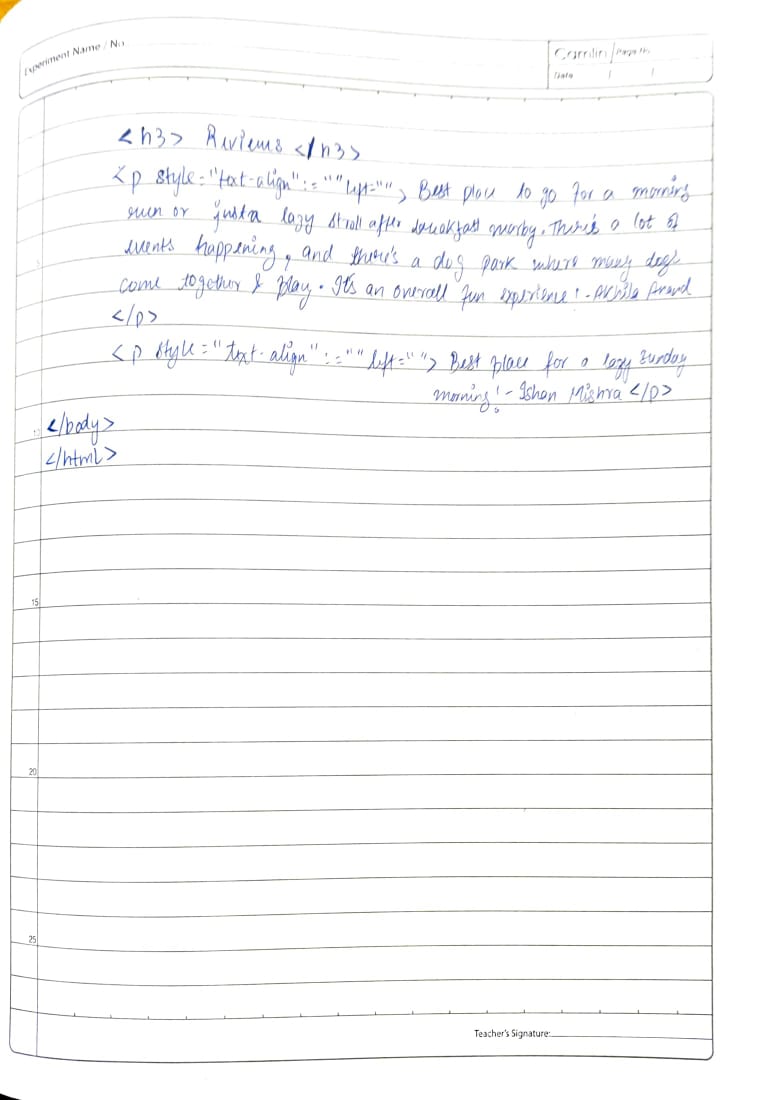 Experiment Name / No.
Camlin Page No.
Date / /
<h3> Reviews </h3>
<p style="text-align":=""" left=""> Best place to go for a morning
run or just a lazy stroll after breakfast nearby. There's a lot of
events happening, and there's a dog park where many dogs
come together & play. It's an overall fun experience! -
</p>
<p style="text-align":="" left=""> Best place for a lazy Sunday
morning! - Ishan Mishra </p>
</body>
</html>
15
20
25
Teacher's Signature: